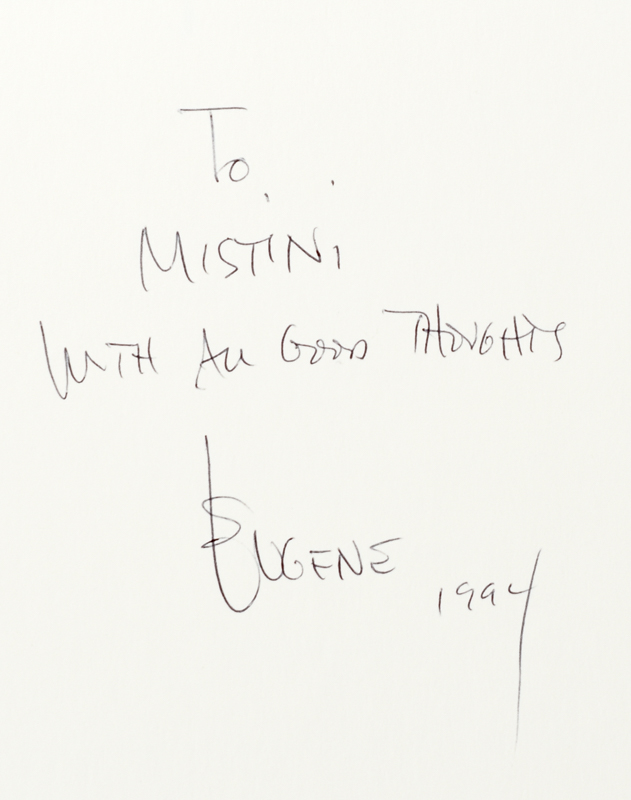 To,
MISTINI
WITH ALL GOOD THOUGHTS
EUGENE 1994